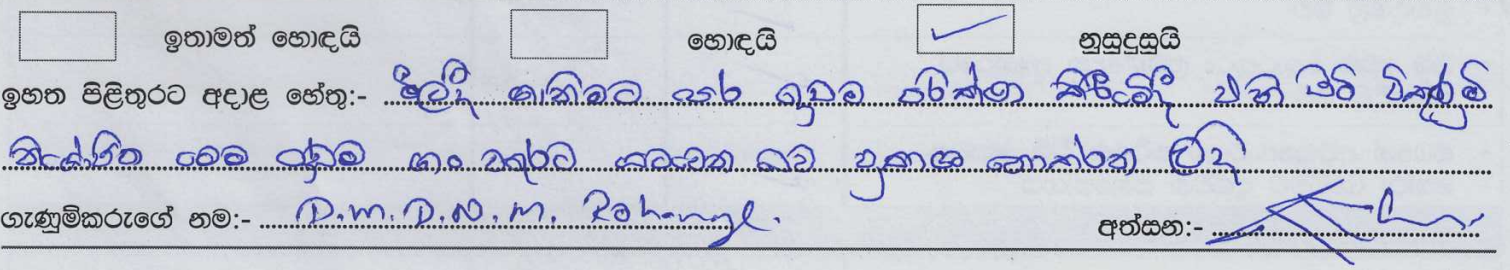 ඉතාමත් හොඳයි හොඳයි නුසුදුසුයි
ඉහත පිළිතුරට අදාළ හේතු:- මිලදී ගැනීමට පෙර ගුඩම පරික්ෂා කිරීමේදී එහි සිටි විකුණුම්
නියෝජිත මෙම ගුඩම ගං වතුරට යටවෙන බව ප්‍රකාශ නොකරන ලදි
ගැණුම්කරුගේ නම:- D.M.D.N.M. අත්සන:-